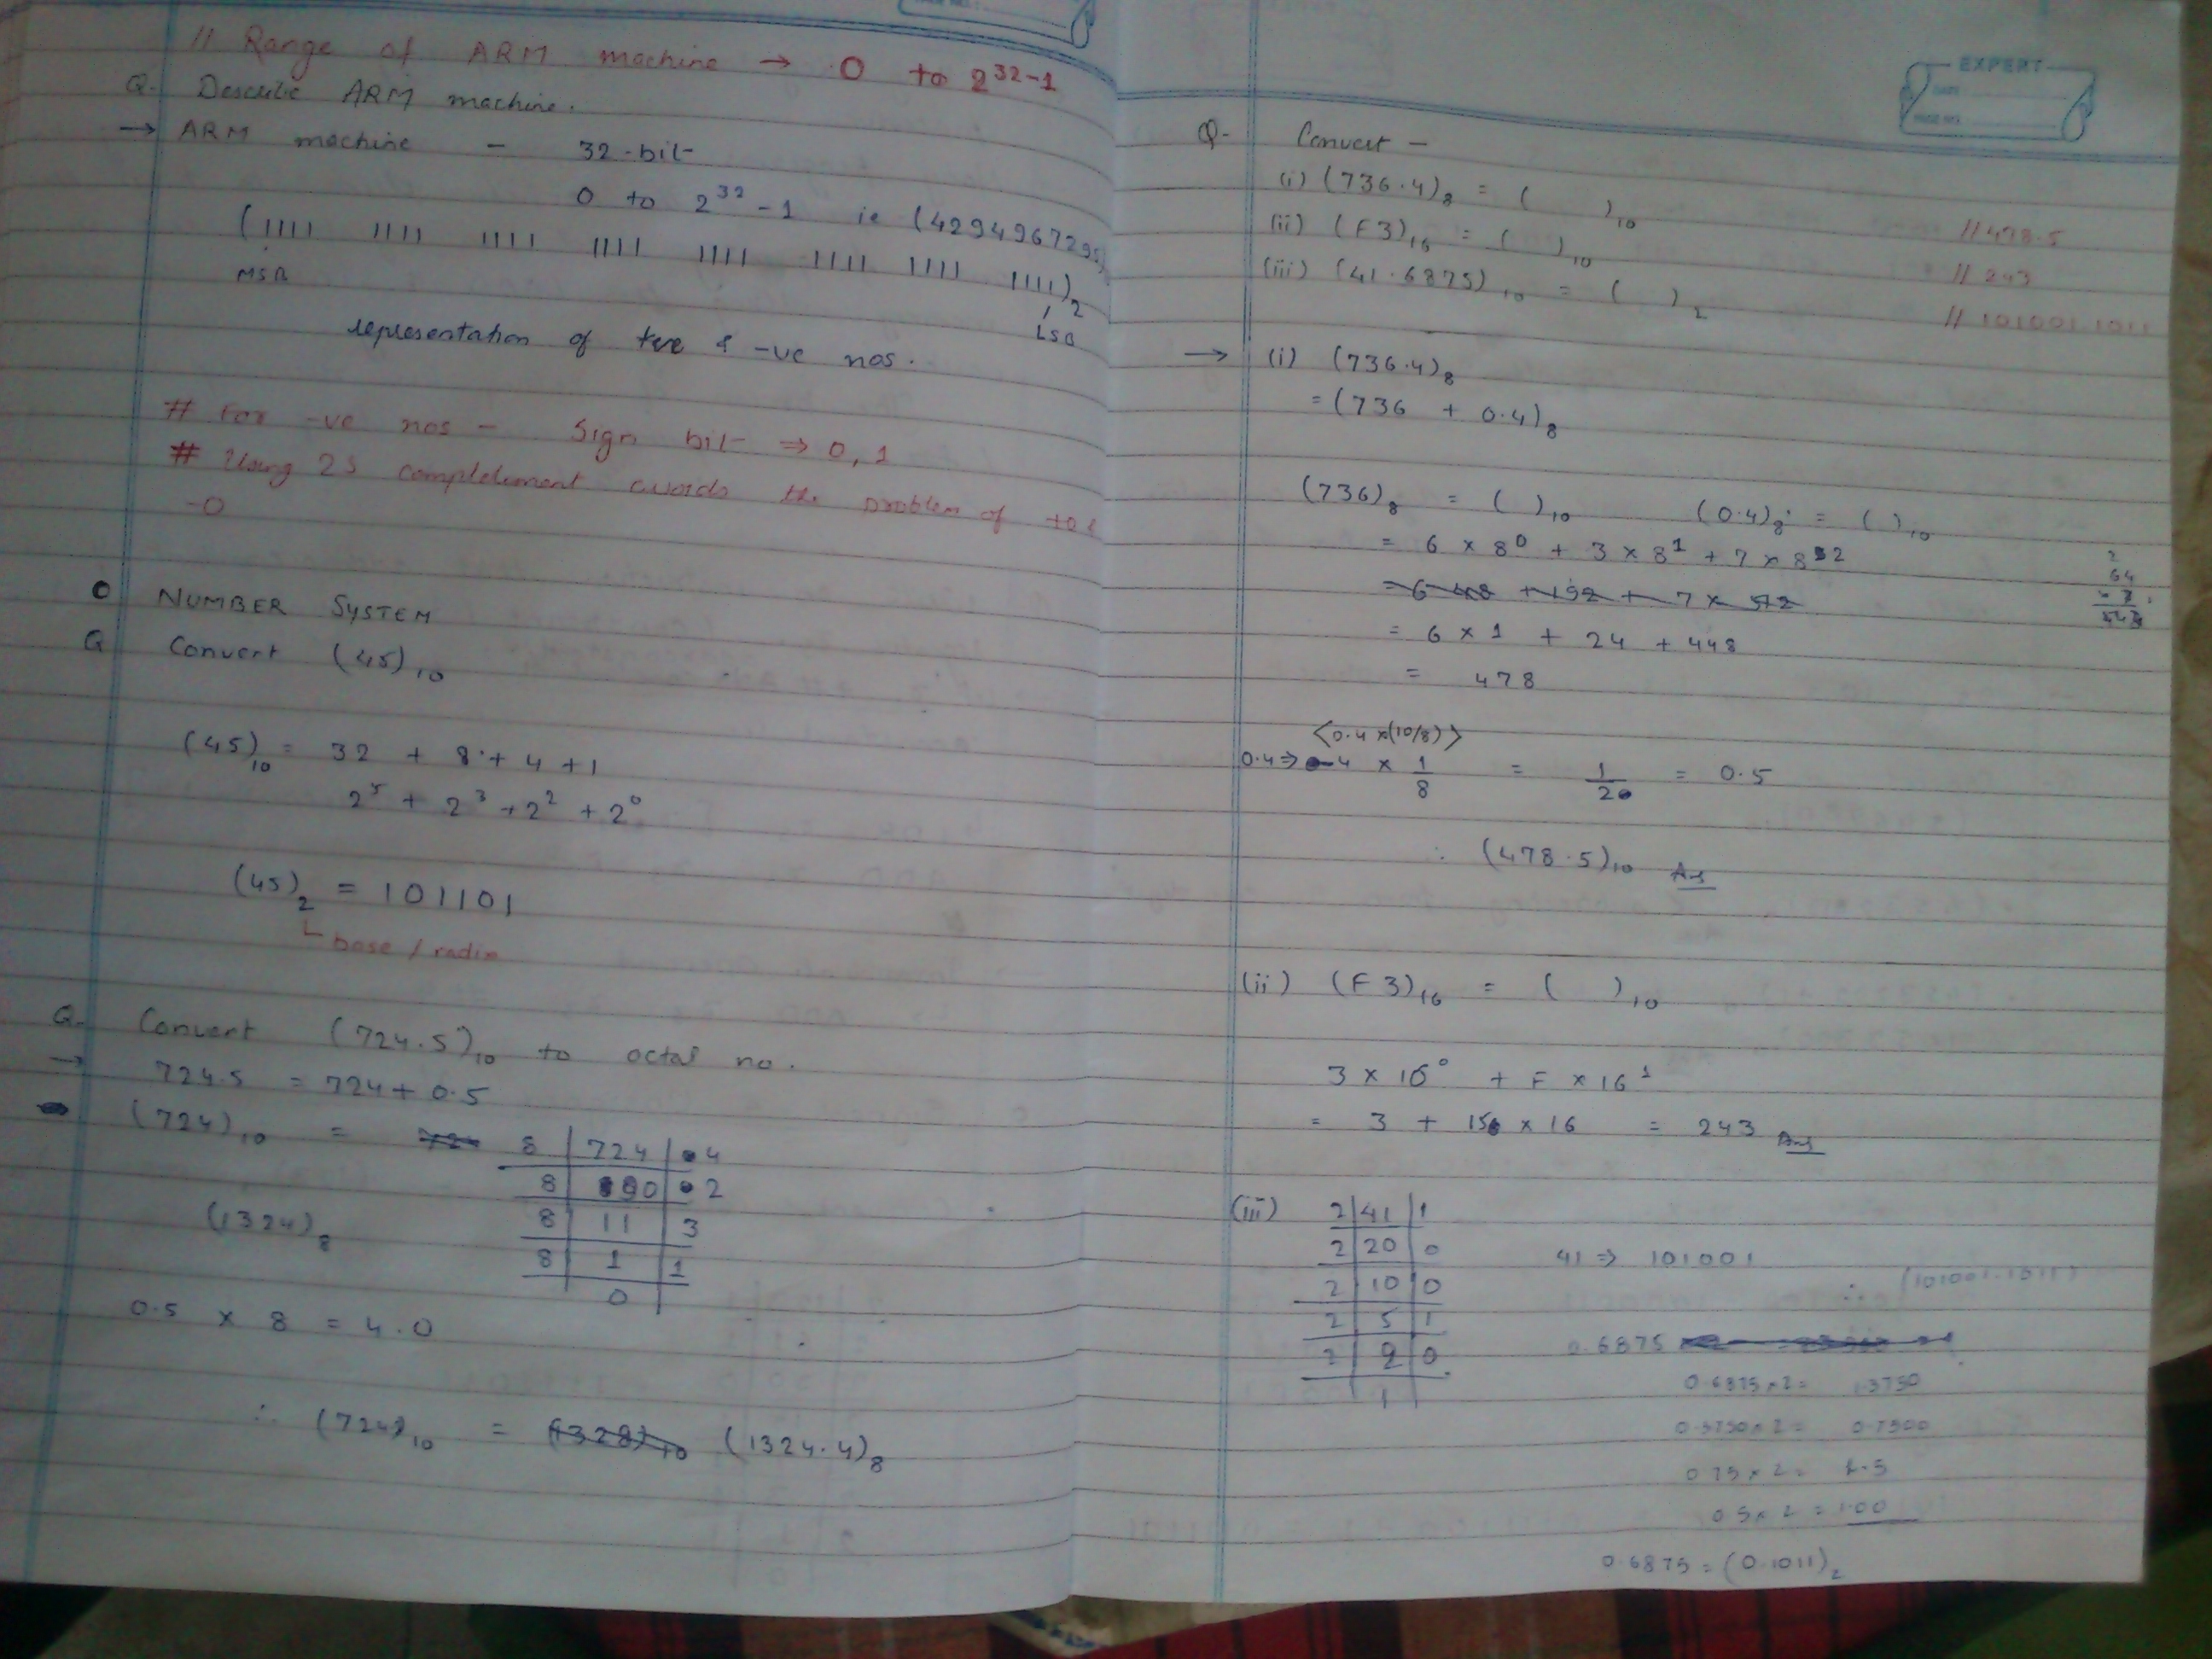 // Range of ARM machine → 0 to 2^32-1
Q. Describe ARM machine.
→ ARM machine - 32-bit
0 to 2^32 - 1 ie (4294967295)
(1111 1111 1111 1111 1111 1111 1111 1111)₂
MSB LSB
representation of +ve & -ve nos.
# For -ve nos - Sign bit ⇒ 0, 1
# Using 2s complelement avoids the problem of +0 &
-0
NUMBER SYSTEM
Q Convert (45)₁₀
(45)₁₀ = 32 + 8 + 4 + 1
2^5 + 2^3 + 2^2 + 2^0
(45)₂ = 101101
base / radix
Q. Convert (724.5)₁₀ to octal no.
→ 724.5 = 724 + 0.5
(724)₁₀ = 8 | 724 | 4
8 | 90 | 2
(1324)₈ 8 | 11 | 3
8 | 1 | 1
0
0.5 × 8 = 4.0
∴ (724)₁₀ = (1328)₁₀ (1324.4)₈
EXPERT
DATE
PAGE NO.
Q- Convert -
(i) (736.4)₈ = ( )₁₀ // 478.5
(ii) (F3)₁₆ = ( )₁₀ // 243
(iii) (41.6875)₁₀ = ( )₂ // 101001.1011
→ (i) (736.4)₈
= (736 + 0.4)₈
(736)₈ = ( )₁₀ (0.4)₈ = ( )₁₀
= 6 × 8^0 + 3 × 8^1 + 7 × 8^2
= 6 × 1 + 24 + 448
= 478
<0.4 × (10/8)>
0.4 ⇒ 4 × 1/8 = 1/2 = 0.5
∴ (478.5)₁₀ Ans
(ii) (F3)₁₆ = ( )₁₀
3 × 16^0 + F × 16^1
= 3 + 15 × 16 = 243 Ans
(iii) 2 | 41 | 1
2 | 20 | 0 41 ⇒ 101001
2 | 10 | 0 ∴ (101001.1011)
2 | 5 | 1
2 | 2 | 0 0.6875
1
0.6875 × 2 = 1.3750
0.3750 × 2 = 0.7500
0.75 × 2 = 1.5
0.5 × 2 = 1.00
0.6875 = (0.1011)₂